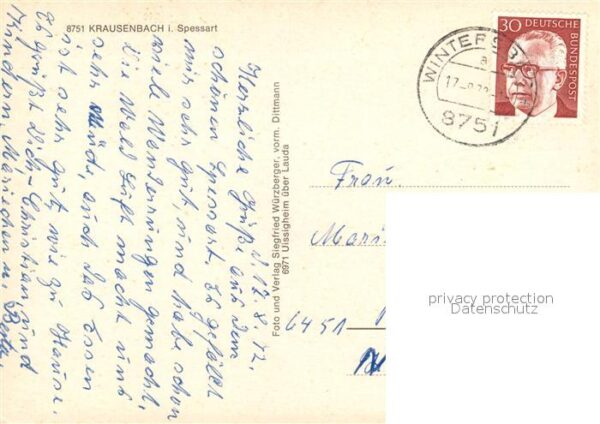 8751 KRAUSENBACH i. Spessart
d. 17. 8. 72.
Herzliche Grüße aus dem
schönen Spessart. Es gefällt
mir sehr gut, und habe schon
viele Wanderungen gemacht,
die Wald Luft macht uns
sehr Müde, auch das Essen
ist sehr gut, wie zu Hause.
Es grüßt Dich Christian und
Kindern, Mariechen u.
Foto und Verlag Siegfried Würzberger, vorm. Dittmann
6971 Uissigheim über Lauda
30 DEUTSCHE BUNDESPOST
8751
Frau
6451
privacy protection
Datenschutz